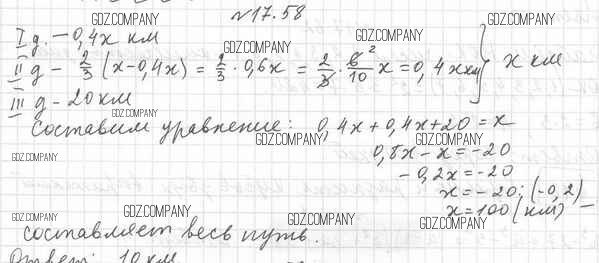 №17.58
I д. - 0,4x км
II д - 2/3 (x-0,4x) = 2/3 · 0,6x = 2/3 · 6²/10 x = 0,4x км } x км
III д - 20 км
Составим уравнение: 0,4x + 0,4x + 20 = x
0,8x - x = -20
- 0,2x = -20
x = -20 : (-0,2)
x = 100 (км) -
составляет весь путь.
Ответ: 10 км
GDZ.COMPANY
GDZ.COMPANY
GDZ.COMPANY
GDZ.COMPANY
GDZ.COMPANY
GDZ.COMPANY
GDZ.COMPANY
GDZ.COMPANY
GDZ.COMPANY
GDZ.COMPANY
GDZ.COMPANY
GDZ.COMPANY